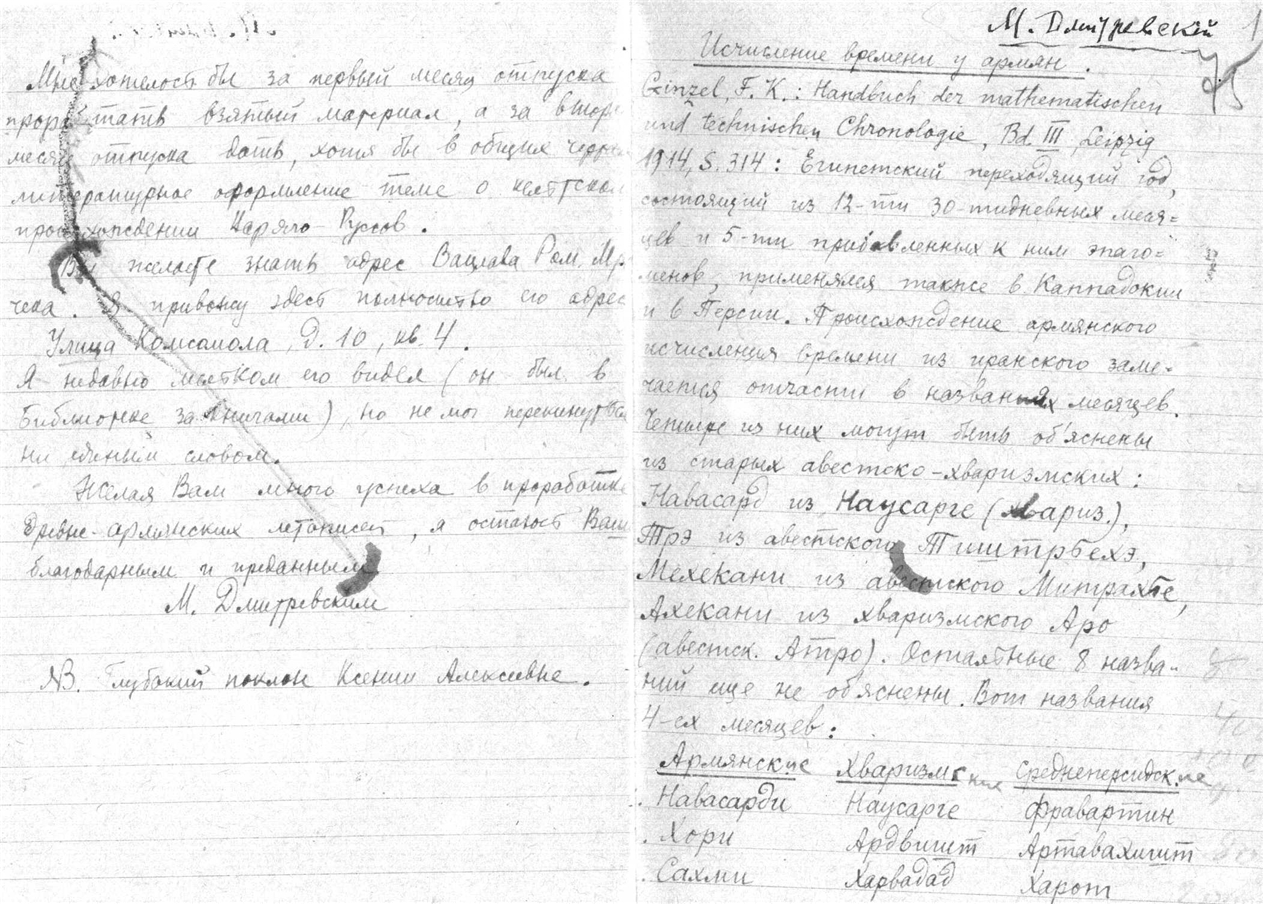 Мне хотелост бы за первый месяц отпуска
проработать взятый материал, а за втор
месяц отпуска дать, хотя бы в общих черта
литературное оформление теме о келтском
происхождении Царяго-Руссов.
Вы желаете знать адрес Вацлава Ром. Мр
чека. Я привожу здест полностью его адрес
Улица Комсомола, д. 10, кв. 4.
Я недавно мелтком его видел (он был в
библиотеке за книгами), но не мог перекинутся
ни единым словом.
Желая Вам много успеха в проработке
древне-армянских летописей, я остаюст Ваш
благодарным и преданным
М. Дмитревским
NB. Глубокий поклон Ксении Алексеевне.
М. Дмитревский
1
75
Исчисление времени у армян.
Ginzel, F. K.: Handbuch der mathematischen
und technischen Chronologie, Bd. III, Leipzig
1914, S. 314: Египетский переходящий год,
состоящий из 12-ти 30-тидневных меся=
цев и 5-ти прибавленных к ним эпаго=
менов, применялся также в Каппадокии
и в Персии. Происхождение армянского
исчисления времени из иранского заме-
чается отчасти в названиях месяцев.
Четыре из них могут быть об'яснены
из старых авестско-хваризмских:
Навасард из Наусарге (хвариз.),
Трэ из авестского Тиштрбехэ,
Мехекани из авестского Митрахте,
Ахекани из хваризмского Аро
(авестск. Атро). Осталтные 8 назва-
ний еще не об'яснены. Вот названия
4-ех месяцев:
Армянские Хваризмские Среднеперсидские
Навасарди Наусарге Фравартин
Хори Ардвигит Артавахигит
Сахми Харвадад Харот